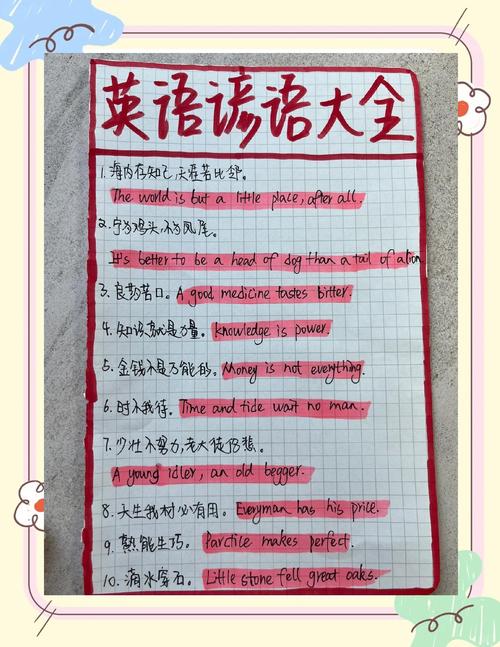 英语谚语大全
1. 海内存知己,天涯若比邻。
The world is but a little place, after all.
2. 宁为鸡头,不为凤尾。
It's better to be a head of dog than a tail of a lion
3. 良药苦口。A good medicine tastes bitter.
4. 知识就是力量。knowledge is power.
5. 金钱不是万能的。Money is not everything.
6. 时不我待。Time and tide wait no man.
7. 少壮不努力,老大徒伤悲。
A young idler, an old begger.
8. 天生我材必有用。Everyman has his price.
9. 熟能生巧。Parctice makes perfect.
10. 滴水穿石。Little stone fell great oaks.